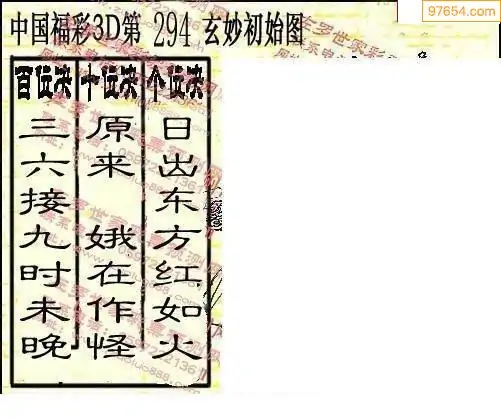 97654.com
中国福彩3D第 294 玄妙初始图
百位决
三六接九时未晚
十位决
原来 娥在作怪
个位决
日出东方红如火